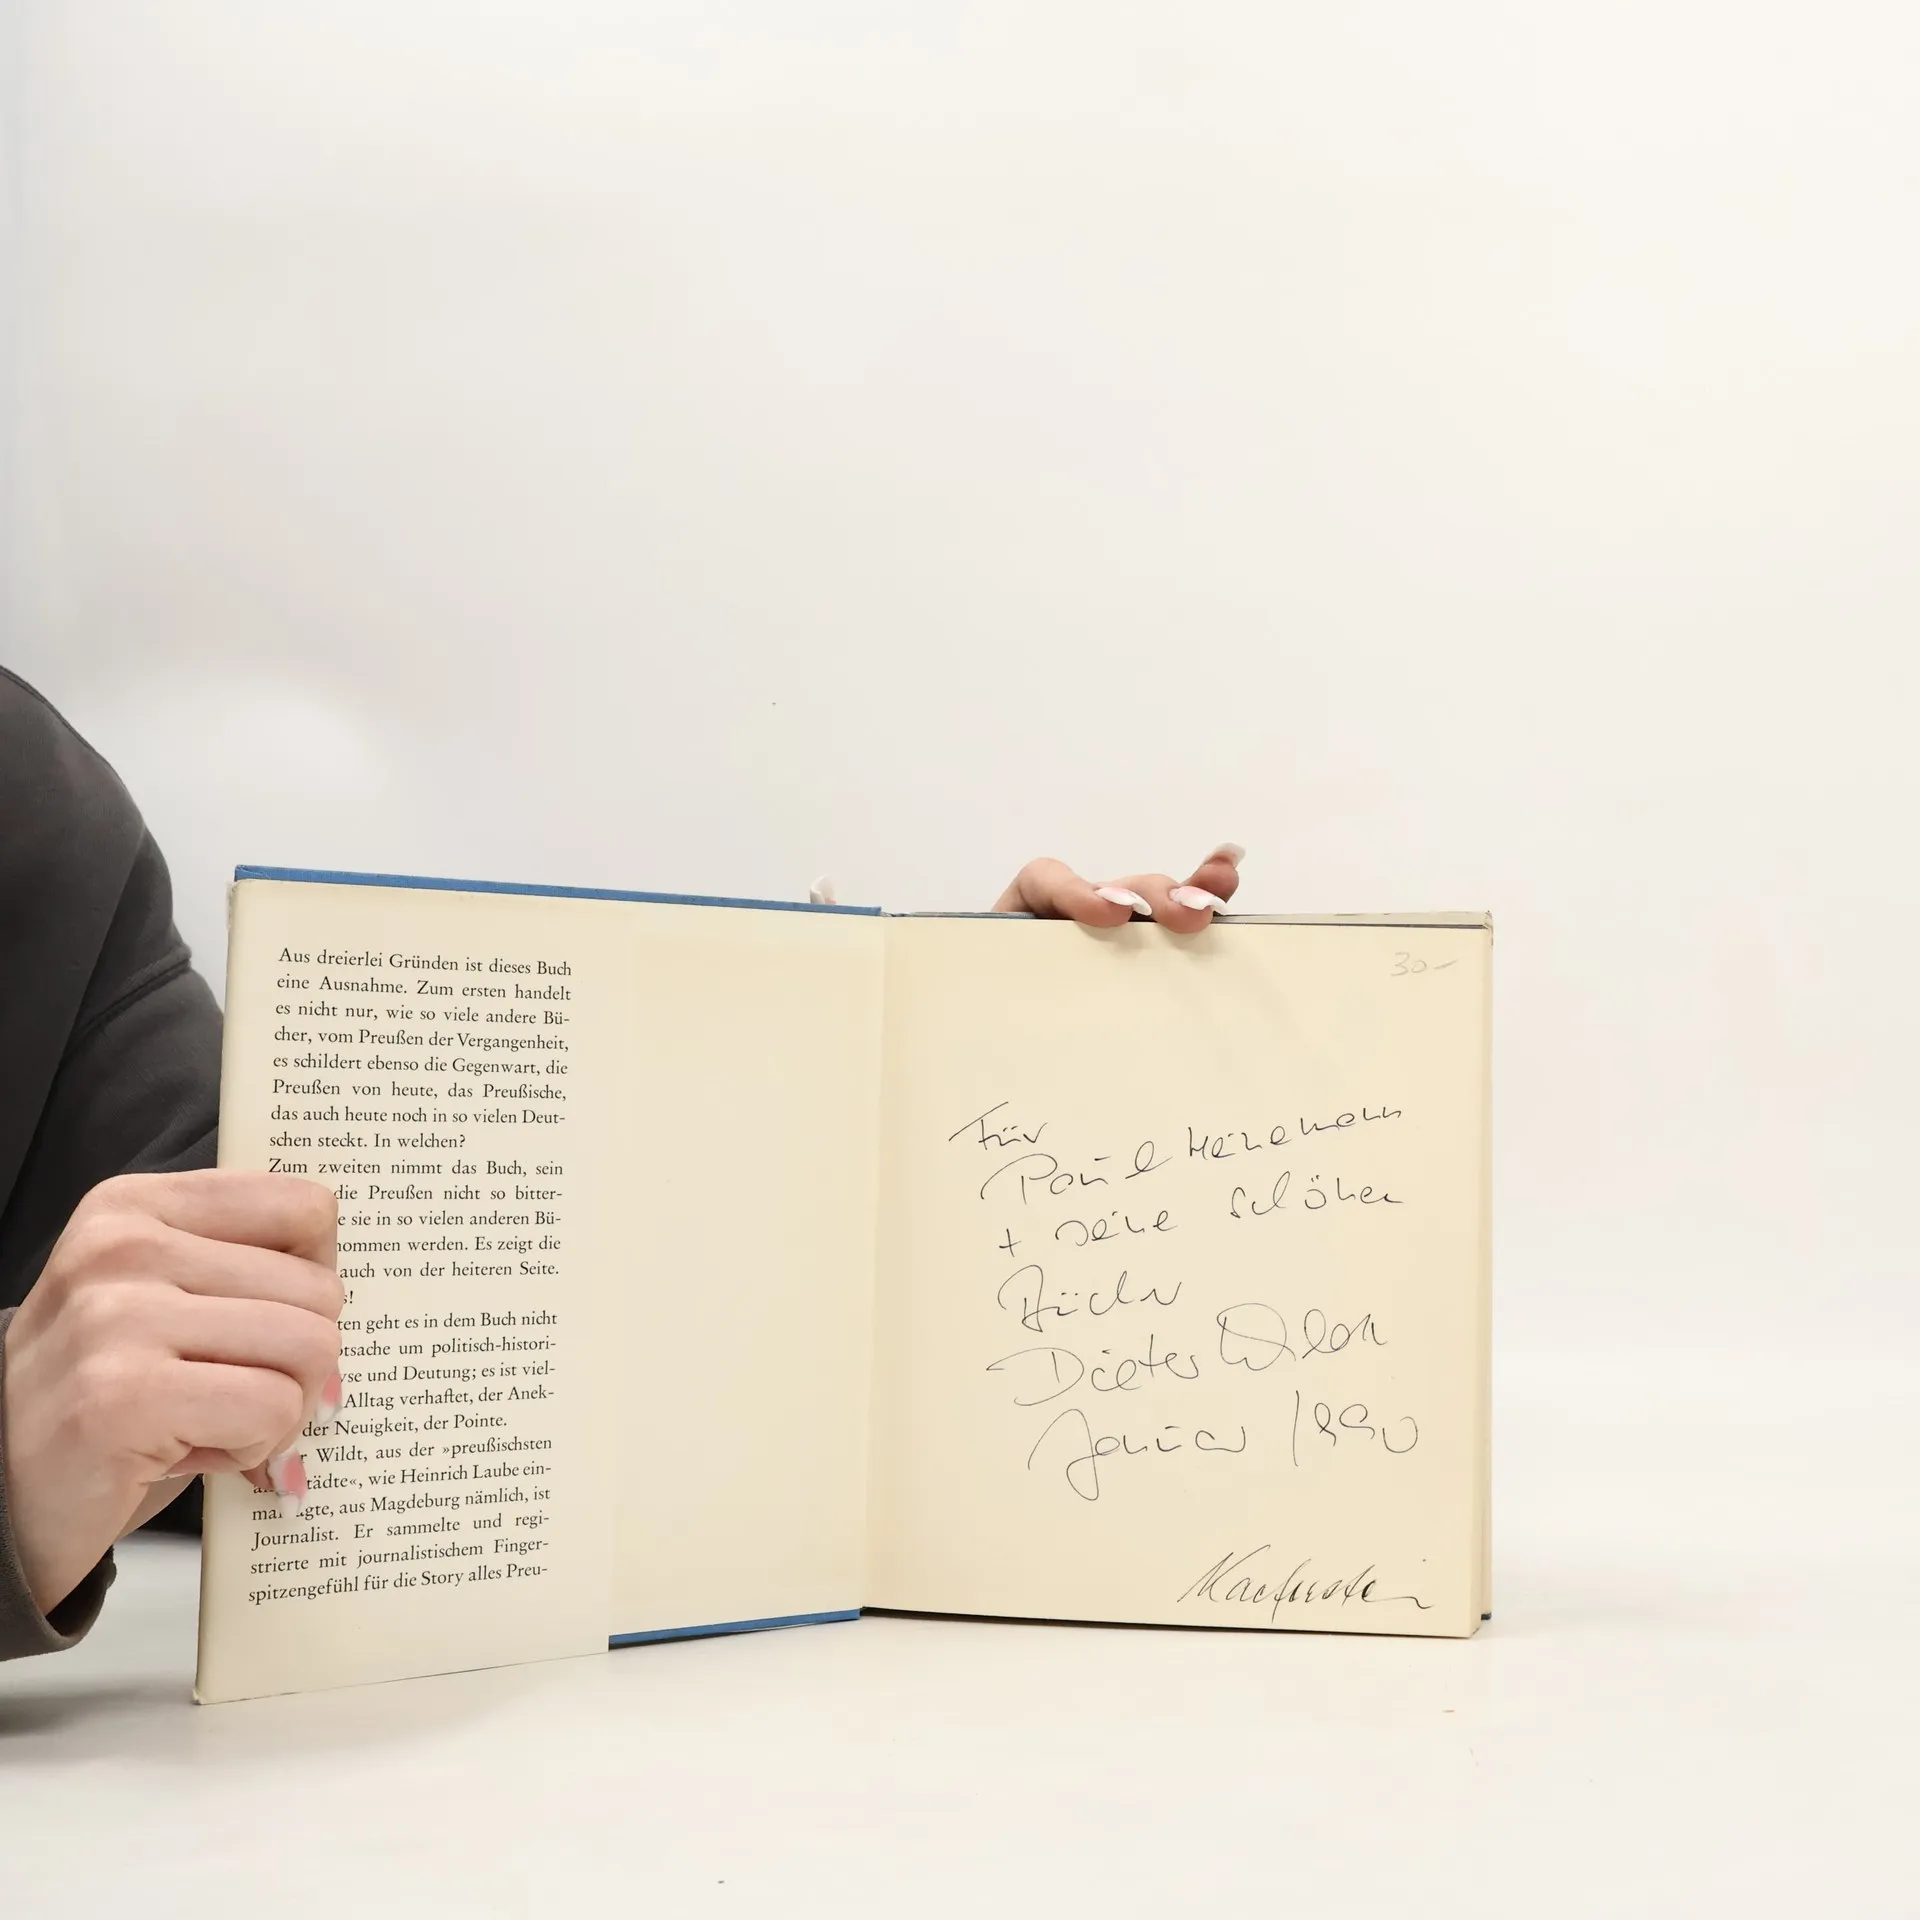 Aus dreierlei Gründen ist dieses Buch
eine Ausnahme. Zum ersten handelt
es nicht nur, wie so viele andere Bü-
cher, vom Preußen der Vergangenheit,
es schildert ebenso die Gegenwart, die
Preußen von heute, das Preußische,
das auch heute noch in so vielen Deut-
schen steckt. In welchen?
Zum zweiten nimmt das Buch, sein
die Preußen nicht so bitter-
e sie in so vielen anderen Bü-
nommen werden. Es zeigt die
auch von der heiteren Seite.
s!
ten geht es in dem Buch nicht
ptsache um politisch-histori-
yse und Deutung; es ist viel-
Alltag verhaftet, der Anek-
der Neuigkeit, der Pointe.
r Wildt, aus der »preußischsten
städte«, wie Heinrich Laube ein-
mal sagte, aus Magdeburg nämlich, ist
Journalist. Er sammelte und regi-
strierte mit journalistischem Finger-
spitzengefühl für die Story alles Preu-
30-
Für
Paul Heinemann
+ seine schönen
Bücher
Dieter Wildt
Januar 1990